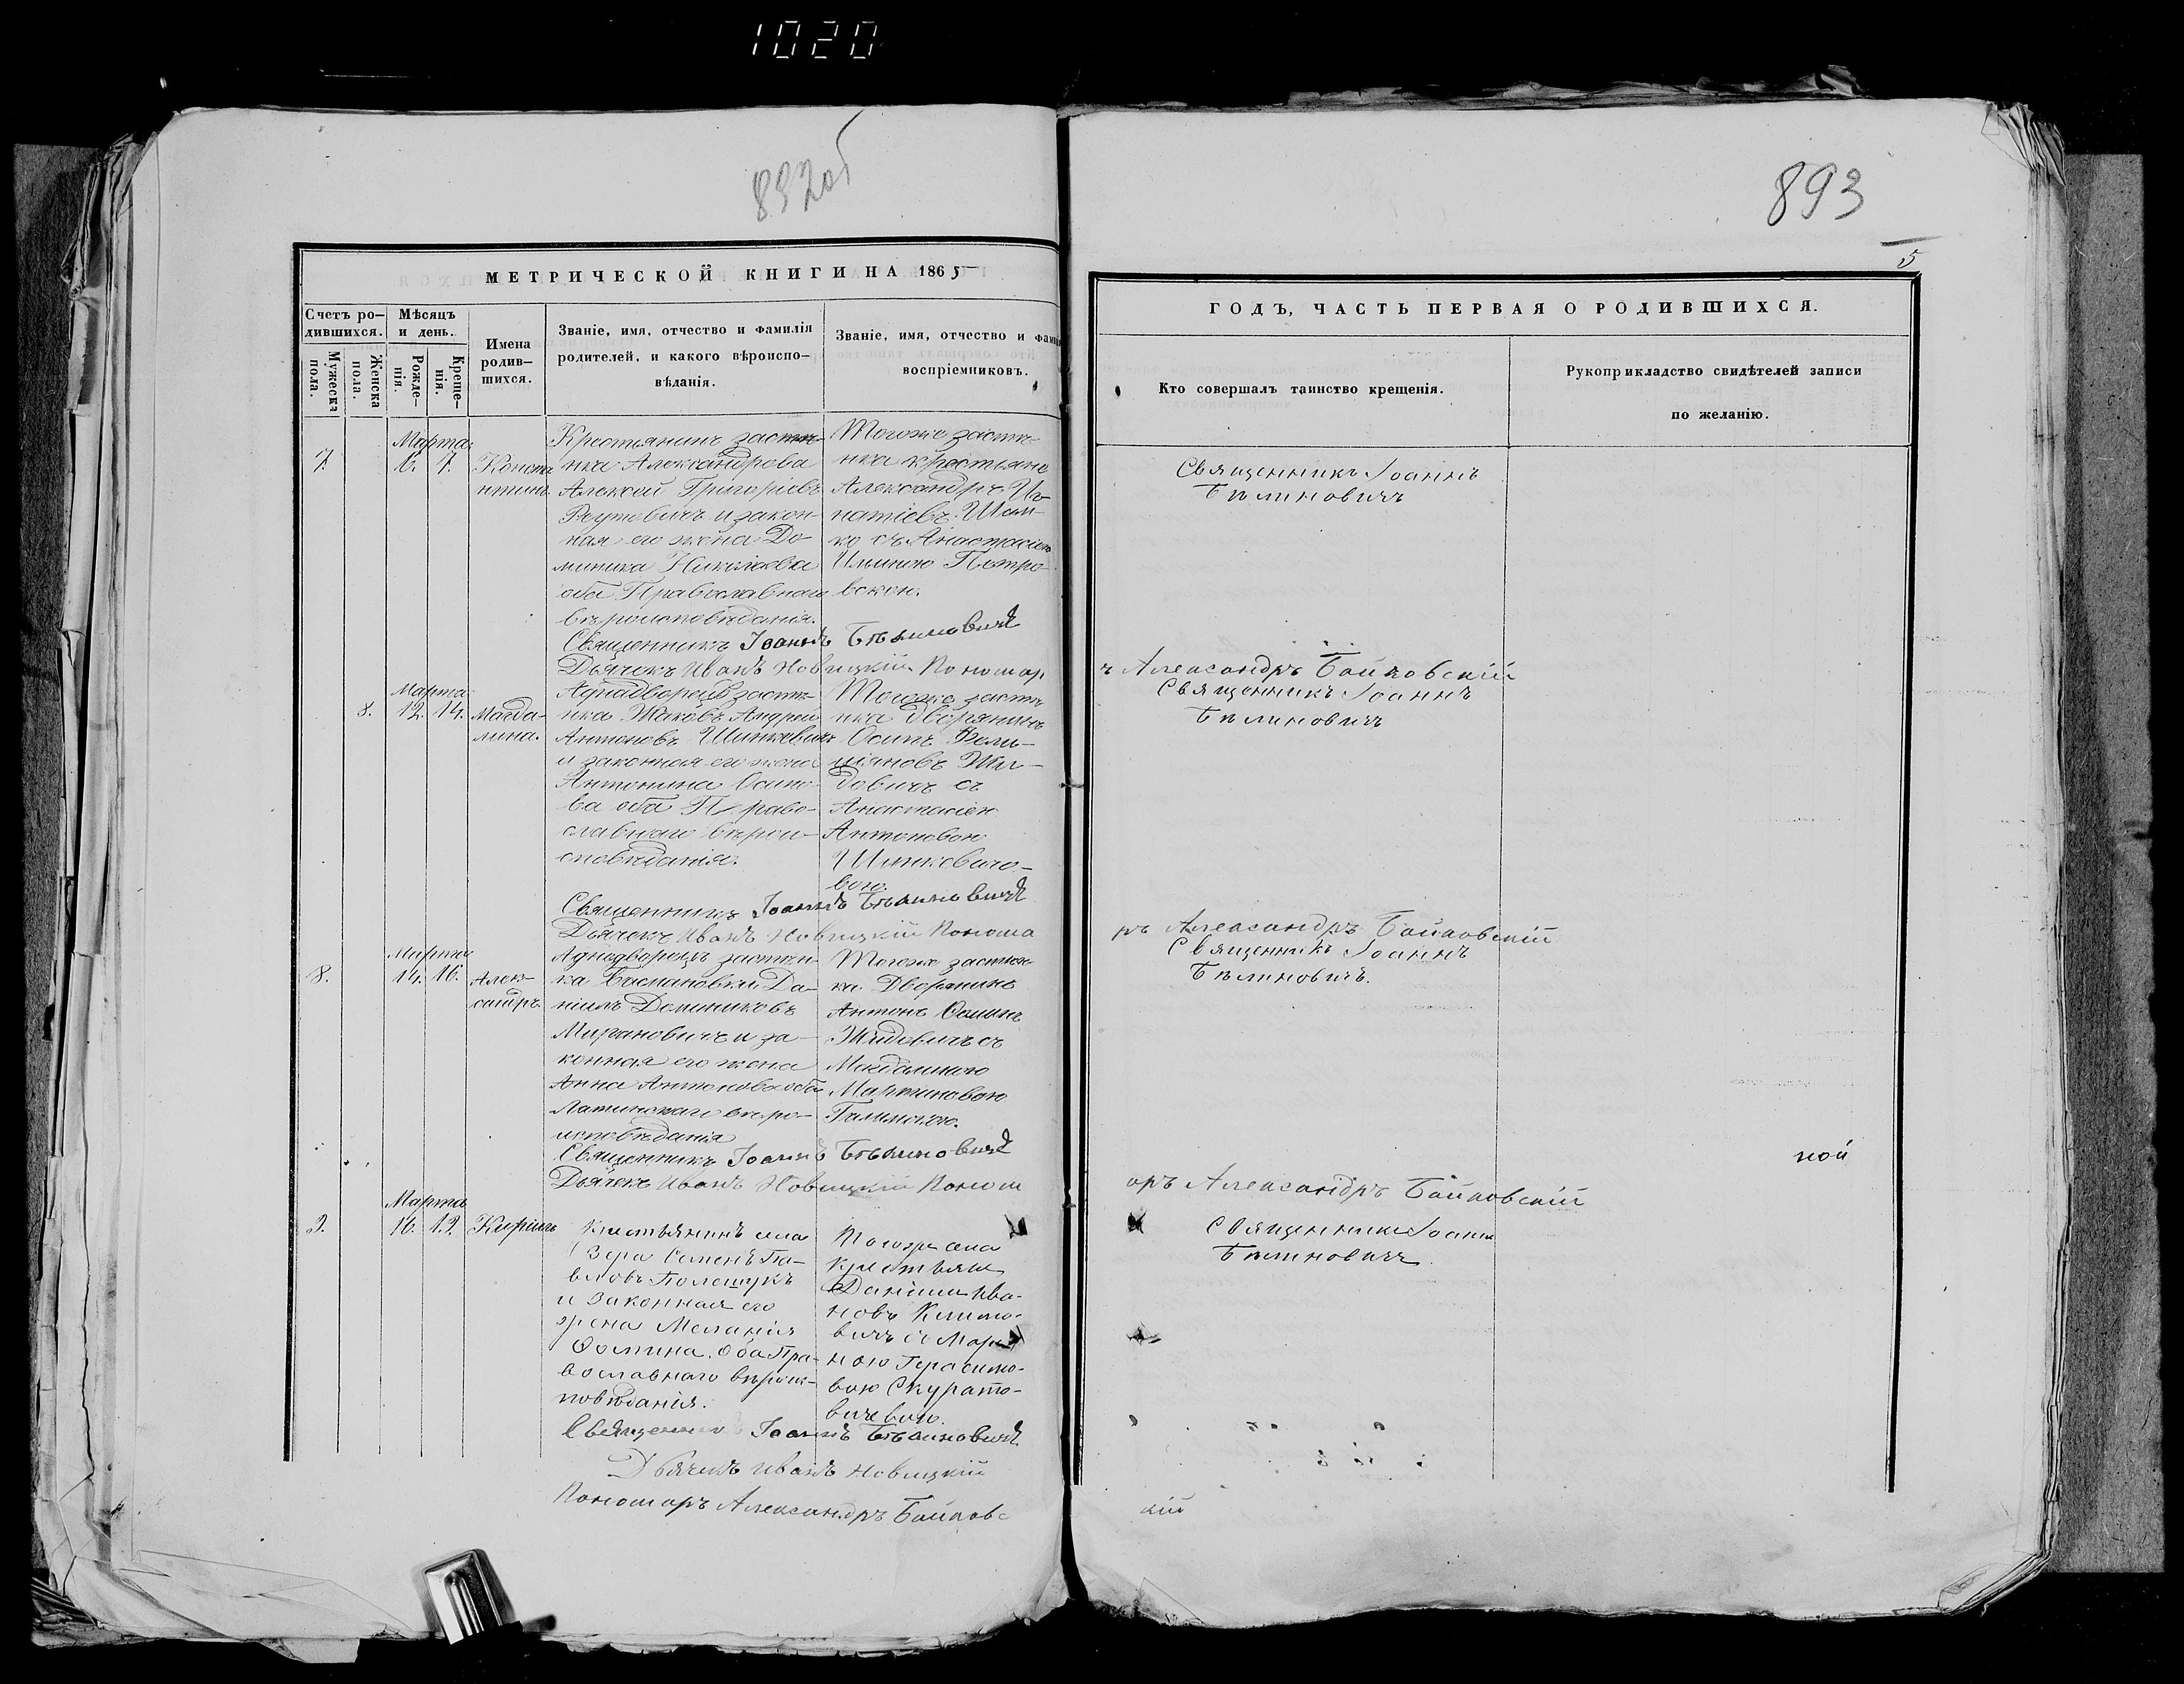 1020
892об
893
5
МЕТРИЧЕСКОЙ КНИГИ НА 1865
ГОДЪ, ЧАСТЬ ПЕРВАЯ О РОДИВШИХСЯ.
Счетъ ро-
дившихся.
Мужеска
пола.
Женска
пола.
Мѣсяцъ
и день.
Рожде-
нія.
Креще-
нія.
Имена
родив-
шихся.
Званіе, имя, отчество и фамилія
родителей, и какого вѣроиспо-
вѣданія.
Званіе, имя, отчество и фами
воспріемниковъ.
Кто совершалъ таинство крещенія.
Рукоприкладство свидѣтелей записи
по желанію.
Марта
7. 6. 7.
Конста
нтинъ
Крестьянинъ застѣ-
нка Александрова
Алексей Григоріевъ
Реутовичъ и закон-
ная его жена До-
миника Николаева
оба Православнаго
вѣроисповѣданія.
Тогоже застѣ-
нка крестьяне
Александръ Иг-
натіевъ
ко съ Анастасіею
Петро-
вскою.
Священникъ Іоаннъ
Бѣлиновичъ
Священникъ Іоаннъ Бѣлиновичъ
Дьячекъ Иванъ Новицкій Пономар
ъ Александръ Байковскій
Марта
8. 12. 14.
Магда-
лина.
Аднадворецъ застѣ-
нка Жаковъ Андрей
Антоновъ Шинкевичъ
и законная его жена
Антонина Осипо-
ва оба Право-
славнаго вѣрои-
сповѣданія.
Тогоже застѣ
нка дворянинъ
Осипъ Фели-
ціяновъ Жи-
довичъ съ
Анастасіею
Антоновою
Шинкевичо-
вою.
Священникъ Іоаннъ
Бѣлиновичъ
Священникъ Іоаннъ Бѣлиновичъ
Дьячекъ Иванъ Новицкій Понома
ръ Александръ Байковскій
Марта
8. 14. 16.
Алек-
сандръ.
Аднодворецъ застѣн-
ка Да-
ніилъ Доминиковъ
и за-
конная его жена
Анна Антонова оба
Латинскаго вѣро-
исповѣданія
Тогоже застѣн-
ка Дворянинъ
Антонъ Осиповъ
Жидовичъ съ
Магдалиною
Мартиновою
Священникъ Іоаннъ
Бѣлиновичъ.
Священникъ Іоаннъ Бѣлиновичъ
Дьячекъ Иванъ Новицкій Поном
аръ Александръ Байковскій
ной
Марта
9. 16. 19. Кирилъ
Крестьянинъ села
Семенъ Па-
вловъ Полещукъ
и законная его
жена Меланія
Фомина. Оба Пра-
вославнаго вѣроис-
повѣданія.
Тогоже села
Крестьяне
Даніилъ Ива-
новъ Климо-
вичъ съ Мари-
ною Герасимо-
вою Скурато-
вичевою.
Священникъ Іоаннъ
Бѣлиновичъ
Священникъ Іоаннъ Бѣлиновичъ
Дьячекъ Иванъ Новицкій
Пономарь Александръ Байковс
кій